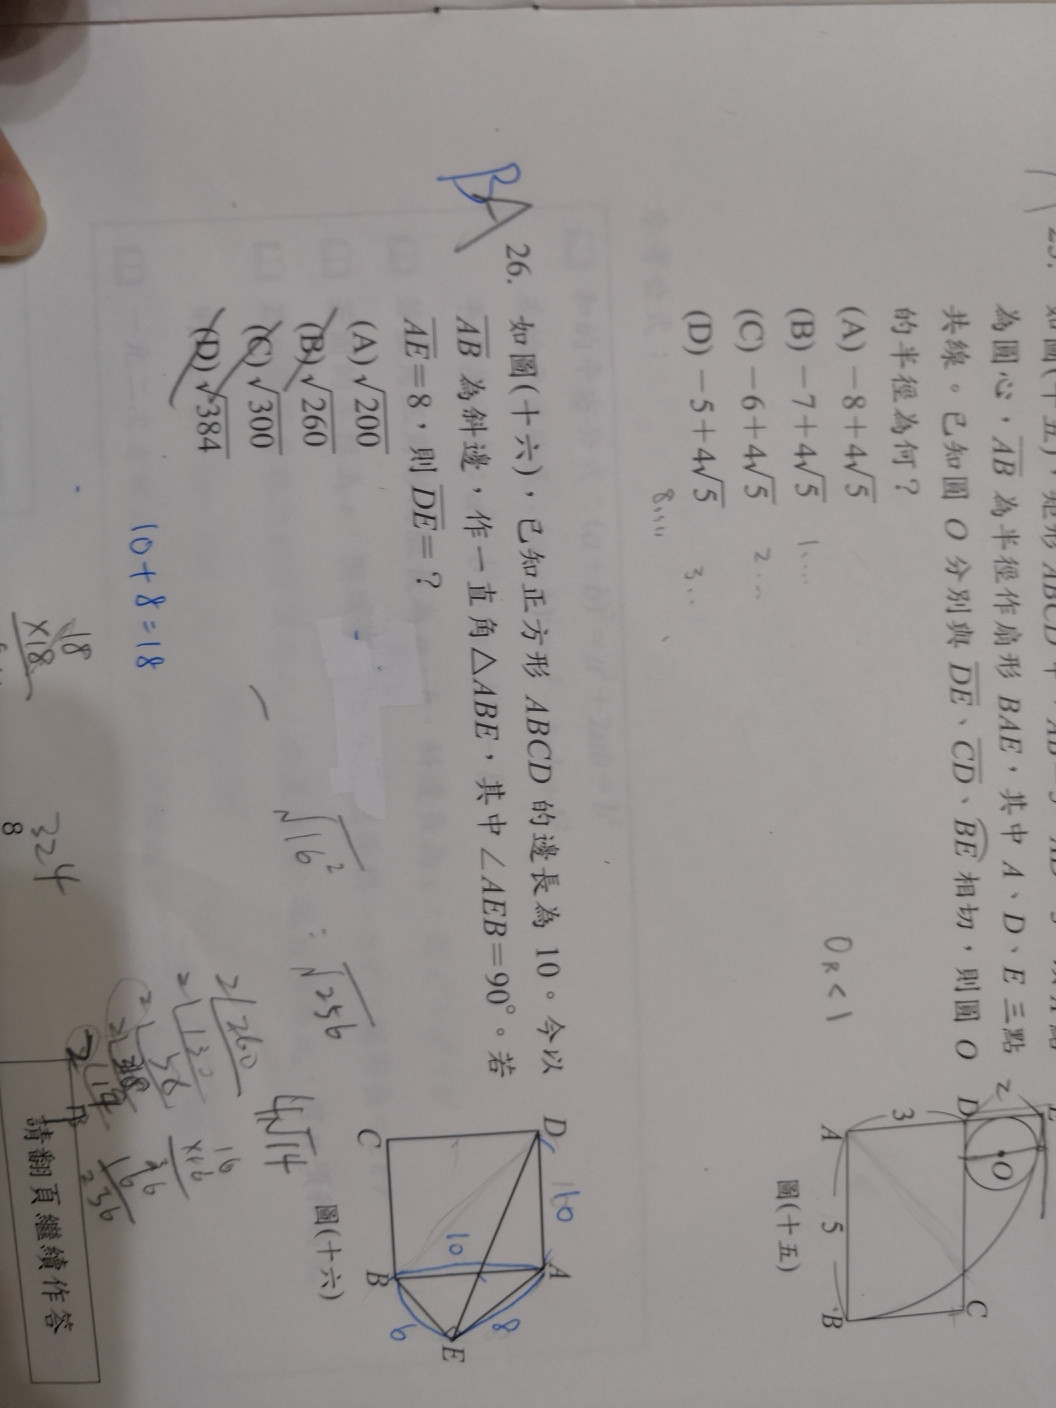 為圓心，AB 為半徑作扇形 BAE，其中 A、D、E 三點
共線。已知圓 O 分別與 DE、CD、BE 相切，則圓 O
的半徑為何？
(A) －8＋4√5
(B) －7＋4√5
(C) －6＋4√5
(D) －5＋4√5
1....
2...
3...
O_R<1
2
D
3
A
O
5
B
C
圖(十五)
26. 如圖(十六)，已知正方形 ABCD 的邊長為 10。今以
AB 為斜邊，作一直角△ABE，其中∠AEB＝90°。若
AE＝8，則 DE＝？
(A) √200
(B) √260
(C) √300
(D) √384
D
10
A
10
C
B
8
6
E
圖(十六)
√16² = √256
4√14
10+8=18
18
×18
324
8
2 260
2 130
16
×16
96
16
256
請翻頁繼續作答